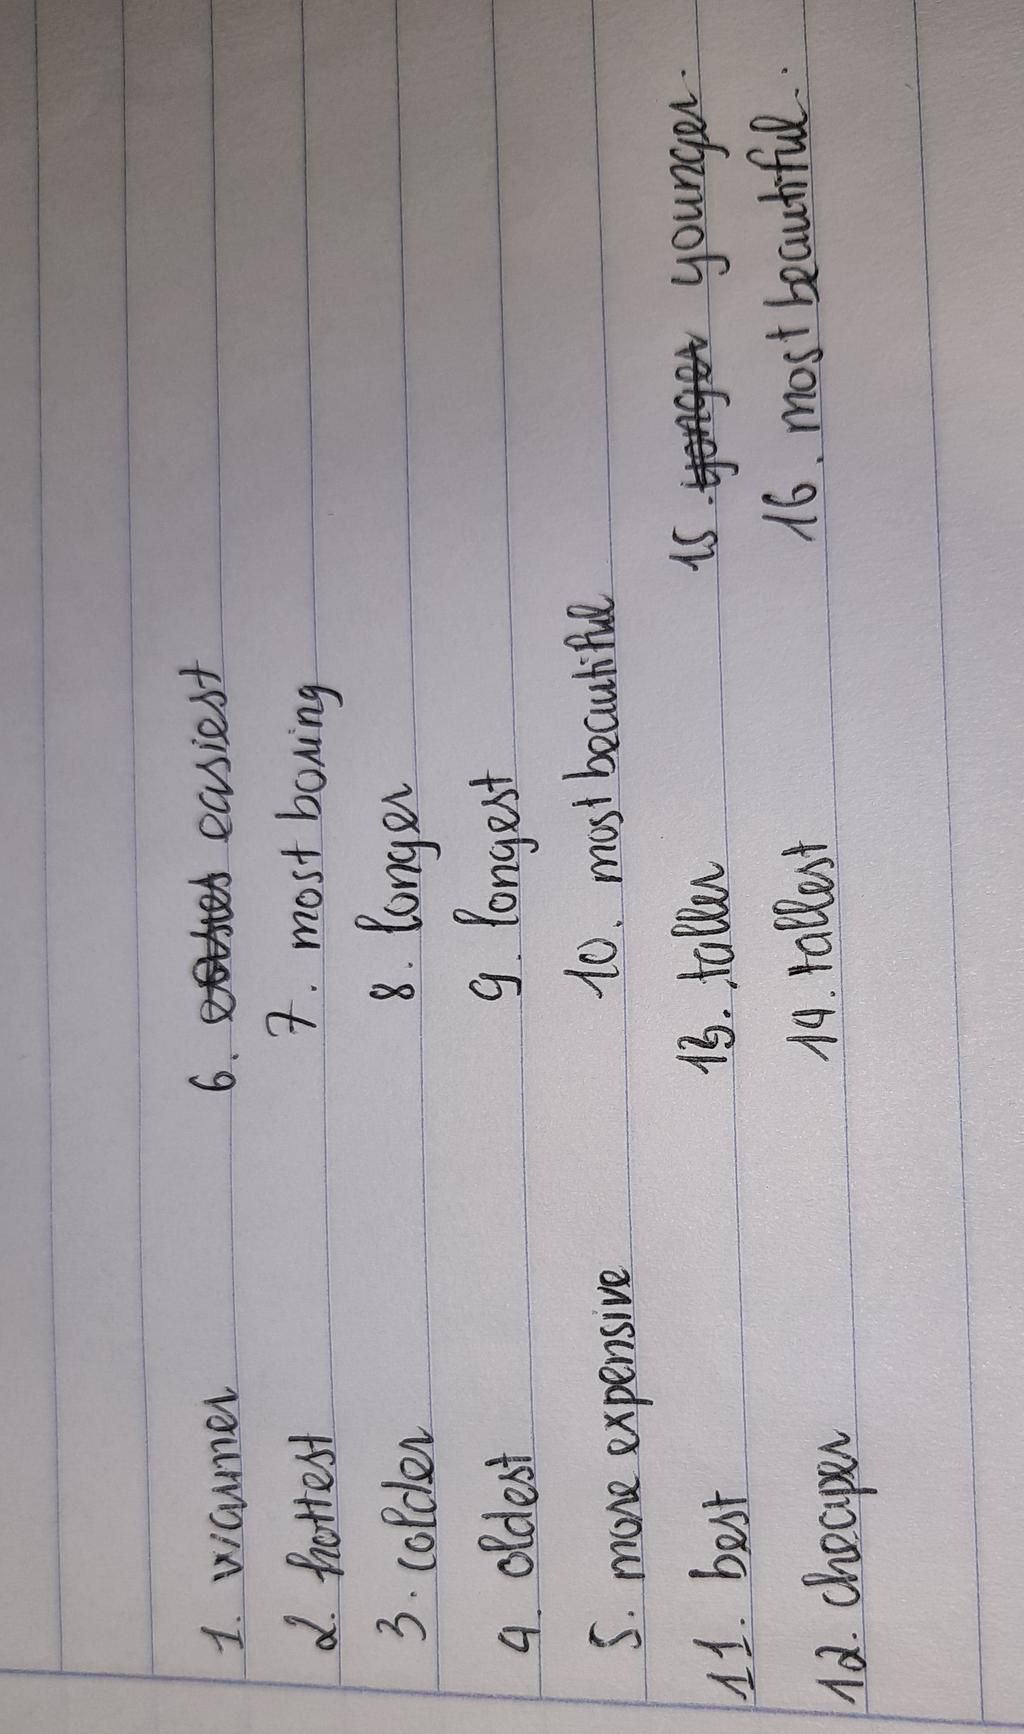 1. warmer 6. easiest
2. hottest 7. most boring
3. colder 8. longer
4. oldest 9. longest
5. more expensive 10. most beautiful
11. best 13. taller 15. younger.
12. cheaper 14. tallest 16. most beautiful.